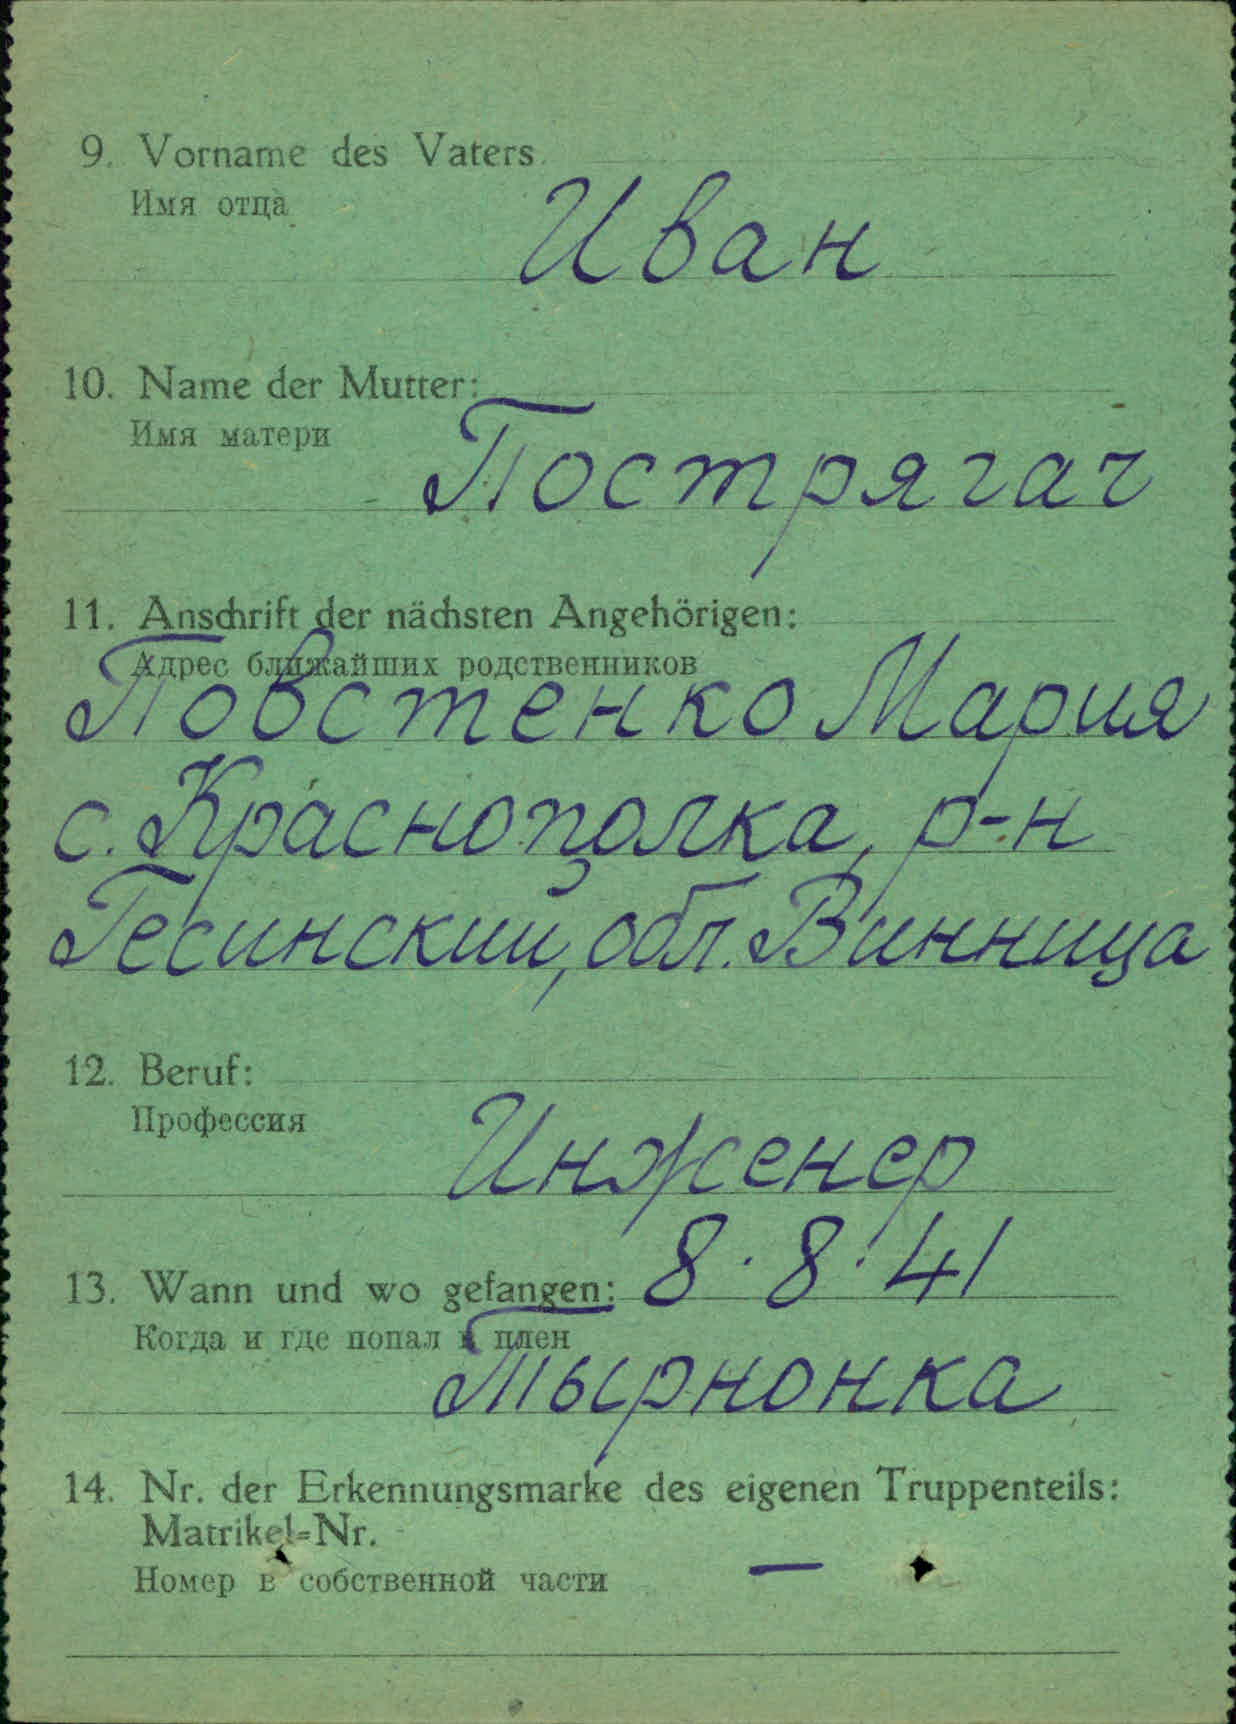 9. Vorname des Vaters.
Имя отца
Иван
10. Name der Mutter:
Имя матери
Пострягач
11. Anschrift der nächsten Angehörigen:
Адрес ближайших родственников
Повстенко Мария
с. Краснополка, р-н
Гесинский, обл. Винница
12. Beruf:
Профессия
Инженер
13. Wann und wo gefangen: 8.8.41
Когда и где попал в плен
Тырнонка
14. Nr. der Erkennungsmarke des eigenen Truppenteils:
Matrikel=Nr.
Номер в собственной части —